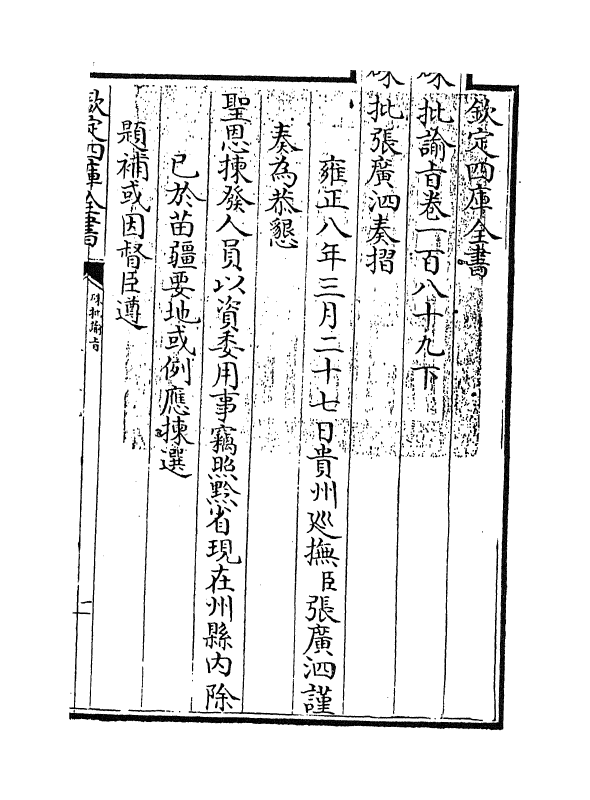 欽定四庫全書
硃批諭旨卷一百八十九下
硃批張廣泗奏摺
雍正八年三月二十七日貴州廵撫臣張廣泗謹
奏為恭懇
聖恩揀發人員以資委用事竊照黔省現在州縣內除
已於苗疆要地或例應揀選
題補或因督臣遵
欽定四庫全書
硃批諭旨
一